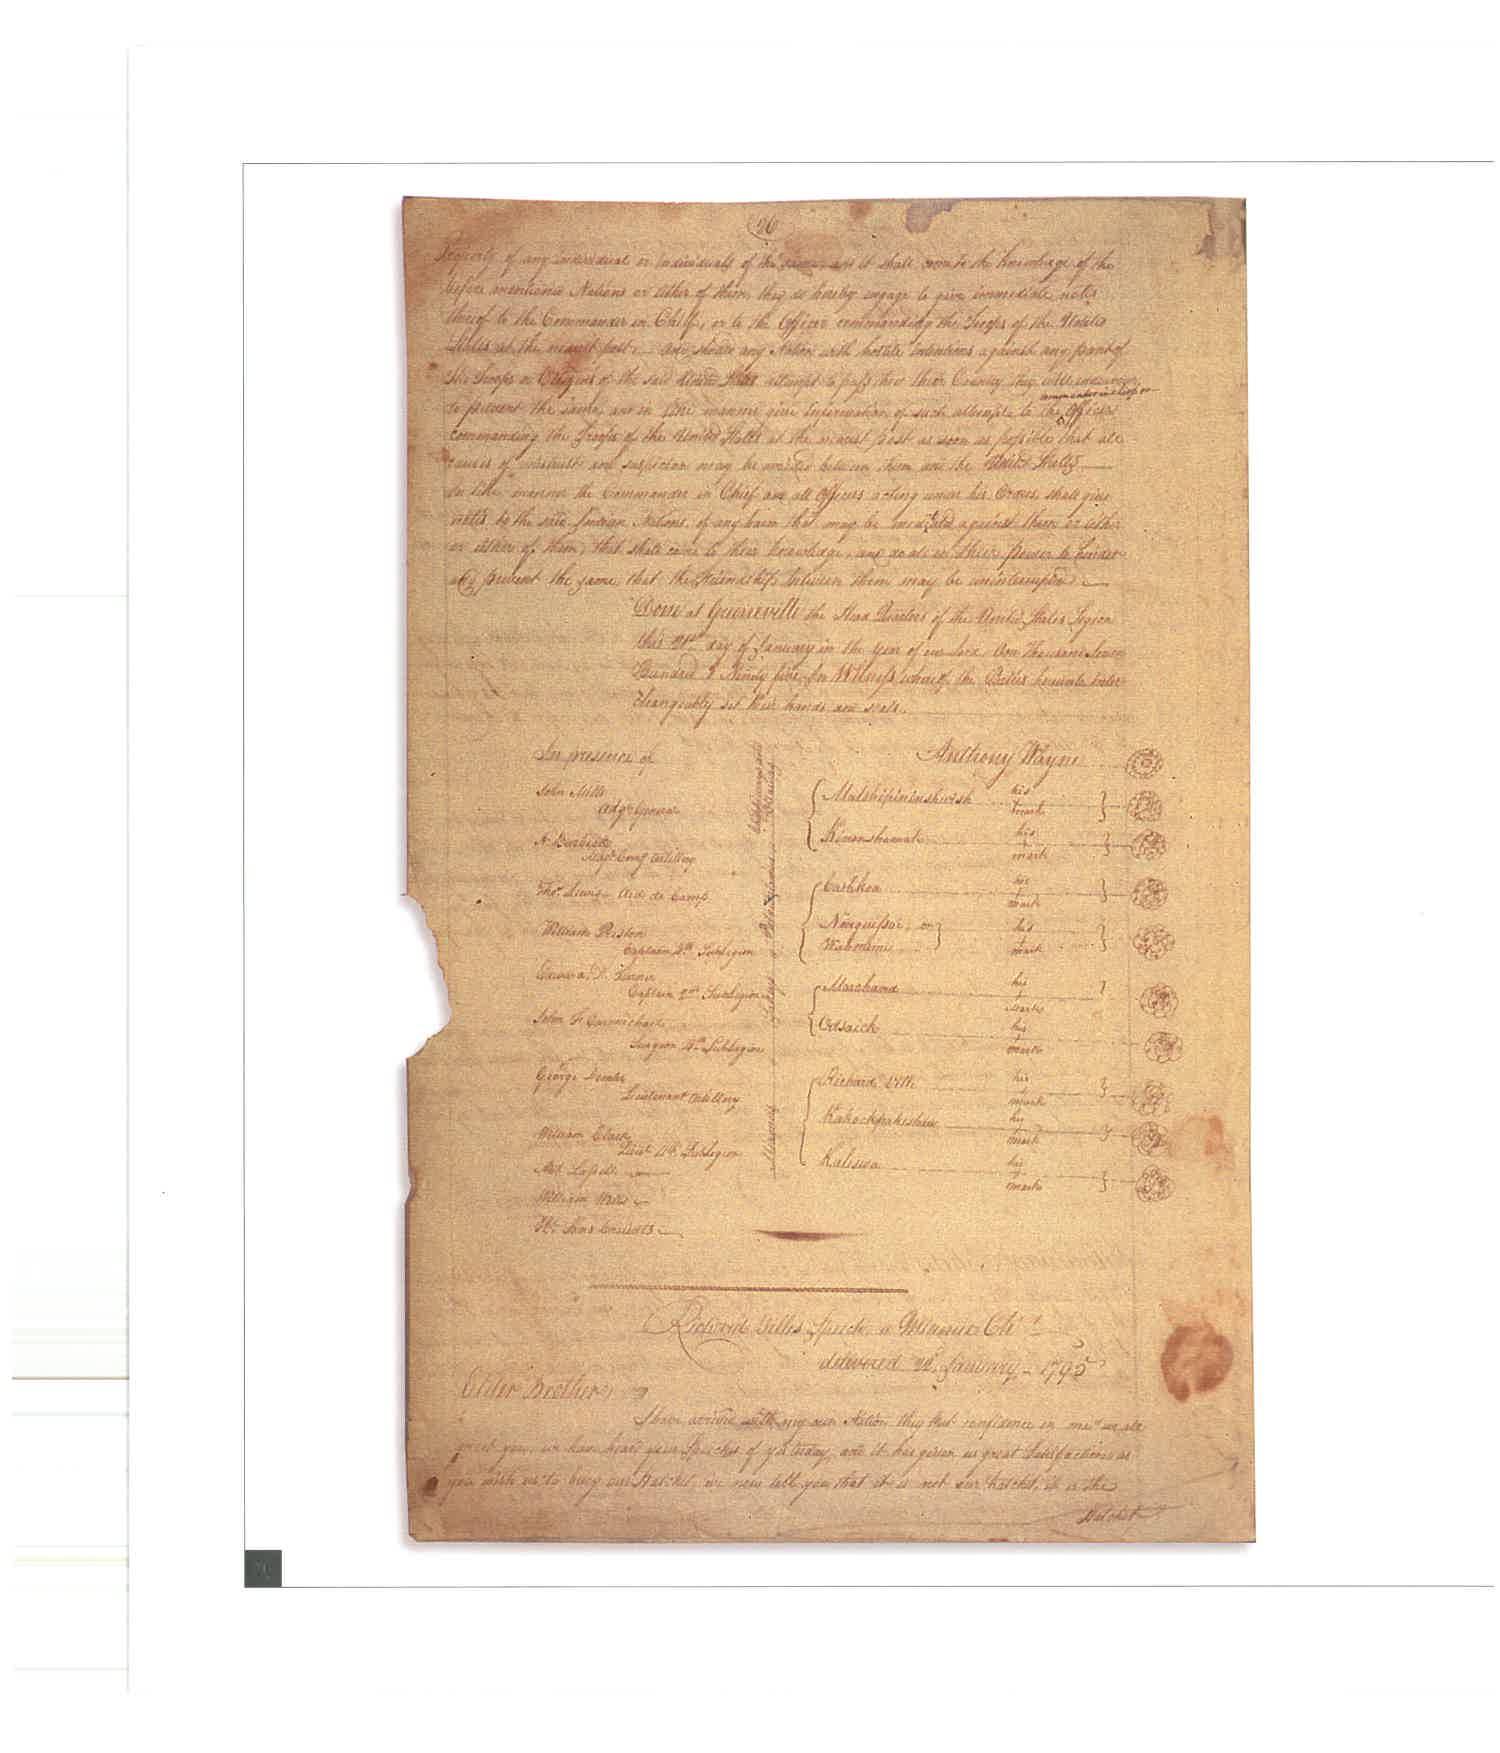 (26)
Property of any individual or individuals of the same and it shall come to the knowledge of the
before mentioned Nations or either of them, they do hereby engage to give immediate notice
thereof to the Commander in Chief, or to the Officer commanding the Troops of the United
States at the nearest post. And should any Nation with hostile intentions against any part of
the Troops or Citizens of the said United States attempt to pass thro' their Country they will endeavour
Commander in Chief or
to prevent the same, and in like manner give Information of such attempts to the Officer
commanding the Troops of the United States at the nearest post as soon as possible that all
causes of mistrust and suspicion may be avoided between them and the United States
In like manner the Commander in Chief and all Officers acting under his Orders, shall give
notice to the said Indian Nations, of any harm that may be meditated against them or either
or either of them, that shall come to their knowledge, and do all in their power to hinder
and prevent the same, that the Friendship between them may be uninterrupted.
Done at Greeneville the Head Quarters of the United States Legion
this 21st day of January in the year of our Lord One Thousand Seven
Hundred & Ninety five, In Witness whereof the Parties hereunto inter
changeably set their hands and seals.
In presence of
Anthony Wayne
John Mills
Adjt General
H. Burbeck
Majr Comg Artillery
Thos Lewis Aid de Camp
William Preston
Captain 4th Sublegion
Edward D. Turner
Captain 2nd Sublegion
John F Carmichael
Surgeon 4th Sublegion
George Demler
Lieutenant Artillery
William Clark
Lieut 4th Sublegion
William Wells
Chippeways and
Potawatamies
Sakeys
Miamies
Matshipininishwish his mark
Kinonshamak his mark
Cashkoa his mark
Nanguissai, or
Wabmimi his mark
Marchand his mark
Odsaick his mark
Richard Vill his mark
Kakockpakishaw his mark
Kaliswa his mark
Richard Villes Speech a Miamia Chf
delivered 22d January - 1795
Elder Brother,
I have arrived with my own Nation they have confidence in me, we all
greet you, we have heard your Speeches of yesterday, and it has given us great Satisfaction as
you wish us to bury our Hatchet, we now tell you that it is not our hatchet, it is the
Hatchet